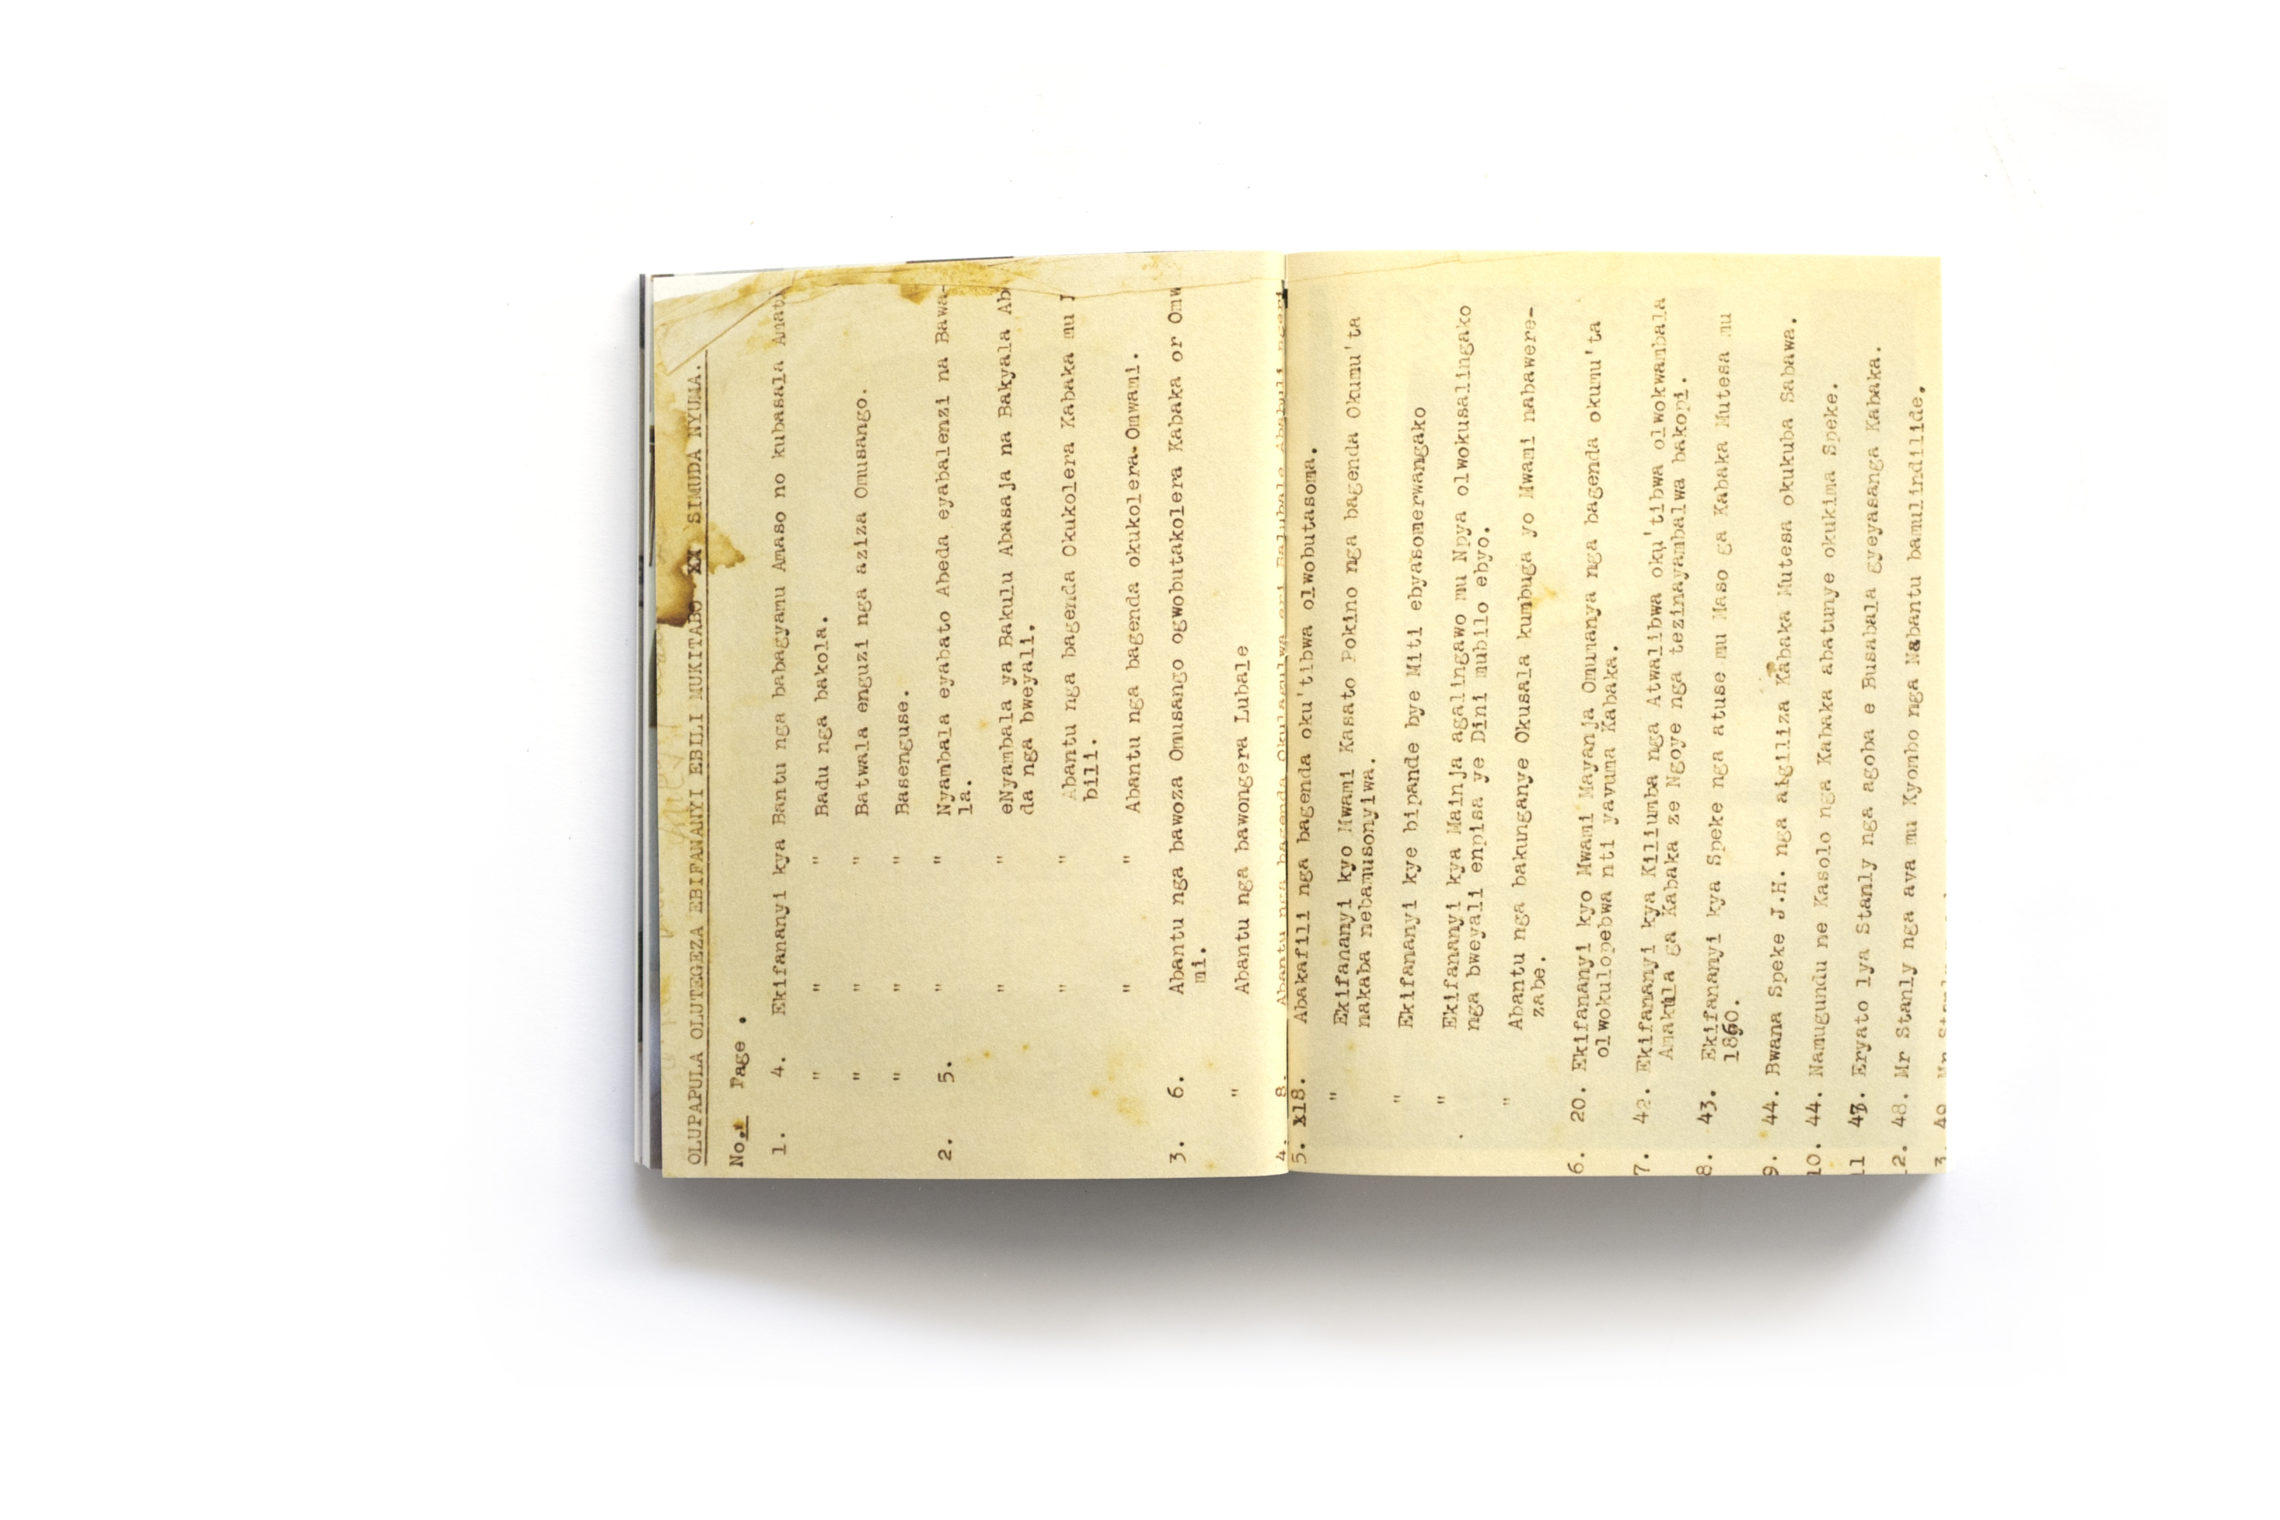 OLUPAPULA OLUTEGEZA EBIFANANYI EBILI MUKITABO XX SIMUDA NYUMA.
No. Page .
1. 4. Ekifananyi kya Bantu nga babagyamu Amaso no kubasala
" " " Badu nga bakola.
" " " Batwala enguzi nga aziza Omusango.
" " " Basenguse.
2. 5. " " Nyambala eyabato Abeda eyabalenzi na Bawa-
la.
" " eNyambala ya Bakulu Abasaja na Bakyala
da nga bweyali.
" " Abantu nga bagenda Okukolera Kabaka mu
bili.
" " Abantu nga bagenda okukolera Omwami.
3. 6. Abantu nga bawoza Omusango ogwobutakolera Kabaka or
mi.
" Abantu nga bawongera Lubale
4. 8. Abantu nga bagenda
5. x18. Abakafili nga bagenda oku'tibwa olwobutasoma.
" Ekifananyi kyo Mwami Kasato Pokino nga bagenda Okumu'ta
nakaba nebamusonyiwa.
" Ekifananyi kye bipande bye Miti ebyasomerwangako
" Ekifananyi kya Mainja agalingawo mu Npya olwokusalingako
nga bweyali enpisa ye Dini mubilo ebyo.
" Abantu nga bakunganye Okusala kumbuga yo Mwami nabawere-
zabe.
6. 20. Ekifananyi kyo Mwami Mayanja Omumanya nga bagenda okumu'ta
olwokulopebwa nti yavuma Kabaka.
7. 42. Ekifananyi kya Kiliumba nga Atwalibwa oku'tibwa olwokwambala
Amakula ga Kabaka ze Ngoye nga tezinayambalwa bakopi.
8. 43. Ekifananyi kya Speke nga atuse mu Maso ga Kabaka Mutesa mu
1860.
9. 44. Bwana Speke J.H. nga aigiliza Kabaka Mutesa okukuba Sabawa.
10. 44. Namugundu ne Kasolo nga Kabaka abatunye okukima Speke.
11 Eryato lya Stanly nga agoba e Busabala gyeyasanga Kabaka.
2. 48. Mr Stanly nga ava mu Kyombo nga Nabantu bamulindilide.